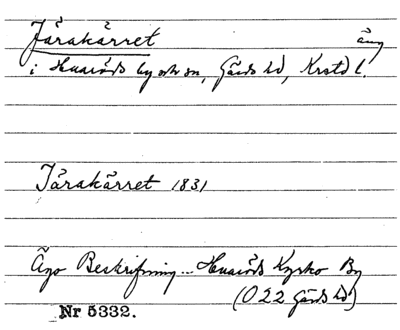 Järakärret äng
i Huaröds by och sn, Gärds hd, Krstd l.
Järakärret 1831
Ägo Beskrifning... Huaröds Kyrko By
(O 22 Gärds hd)
Nr 5332.